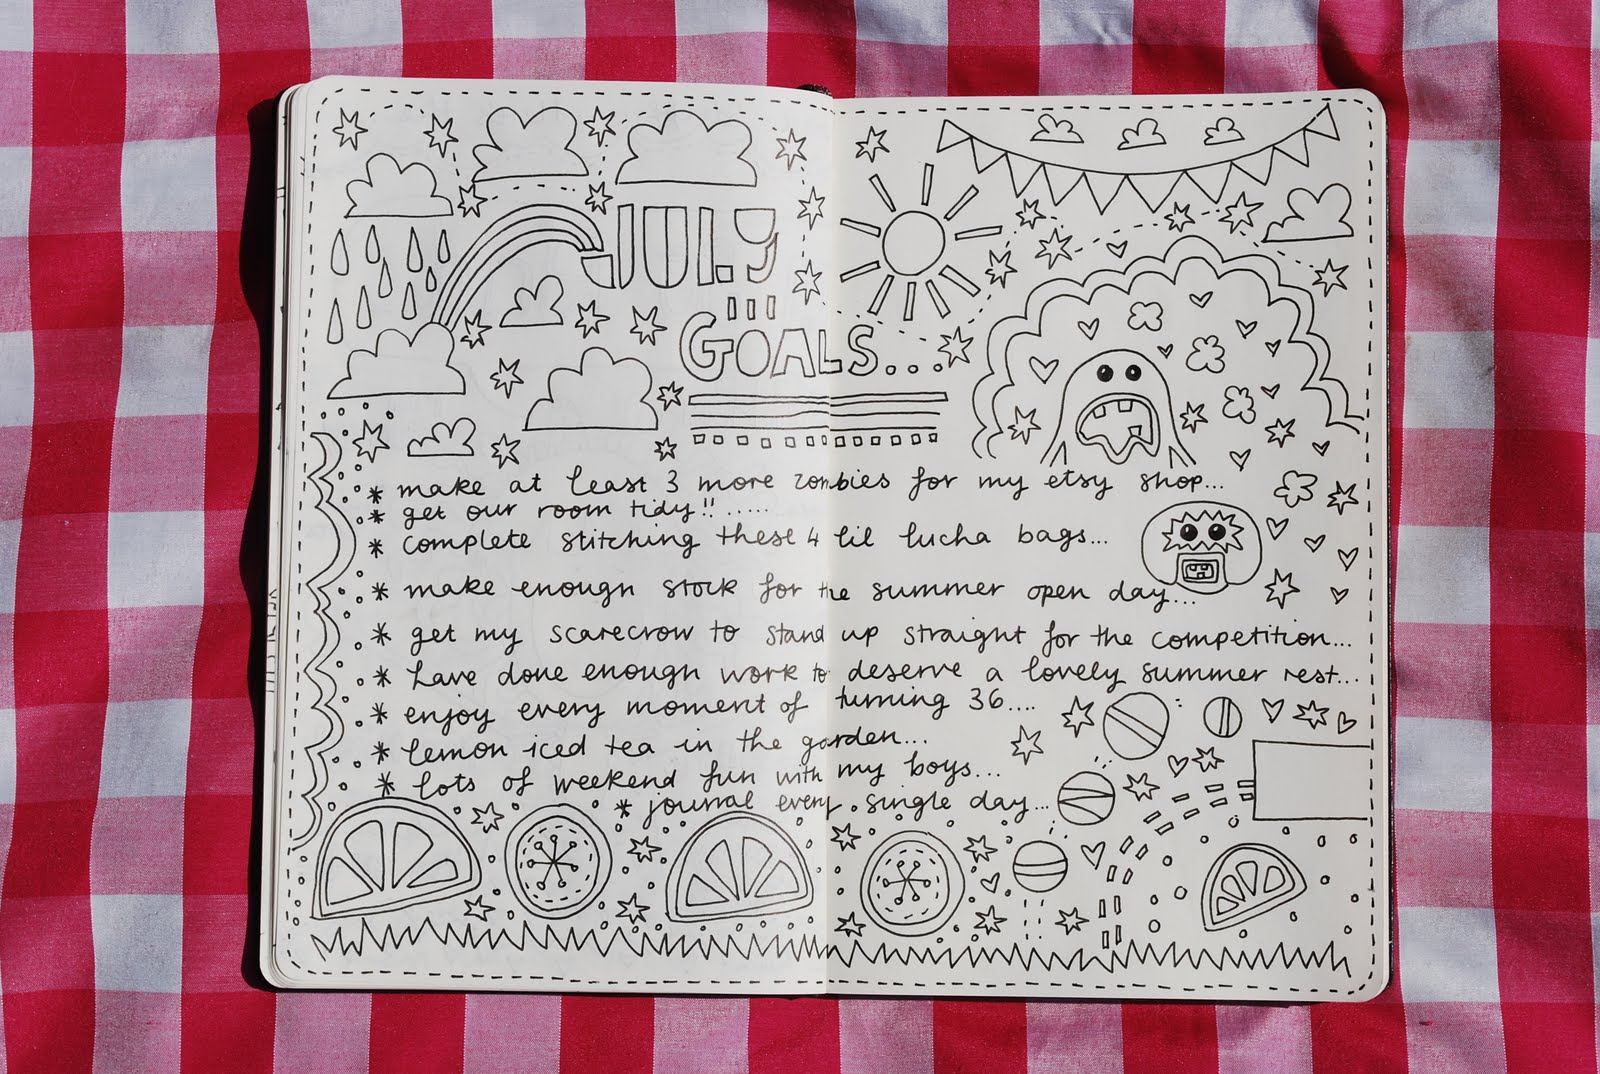 JULY
GOALS...
* make at least 3 more zombies for my etsy shop...
* get our room tidy!! .....
* complete stitching these 4 lil lucha bags...
* make enough stock for the summer open day...
* get my scarecrow to stand up straight for the competition...
* have done enough work to deserve a lovely summer rest...
* enjoy every moment of turning 36....
* lemon iced tea in the garden...
* lots of weekend fun with my boys...
* journal every single day...